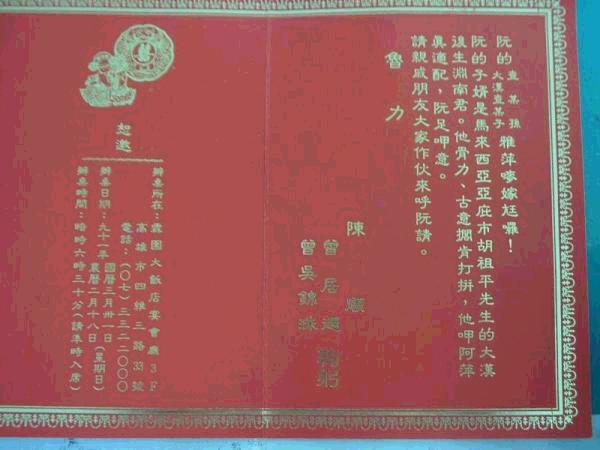 阮的 查某孫 大漢查某子 雅萍嘜嫁尪囉！
阮的子婿是馬來西亞亞庇市胡祖平先生的大漢
後生淵南君。他骨力、古意擱肯打拚，他呷阿萍
真適配，阮足呷意。
請親戚朋友大家作伙來呼阮請。
魯力
陳 順
曾居 鞠躬
曾吳錦珠
恕邀
辦桌所在：霖園大飯店宴會廳3F
高雄市四維三路33號
電話：(○七)三三二二○○○
辦桌日期：九十一年 國曆三月卅一日(星期日)
農曆二月十八日
辦桌時間：暗時六時三十分(請準時入席)